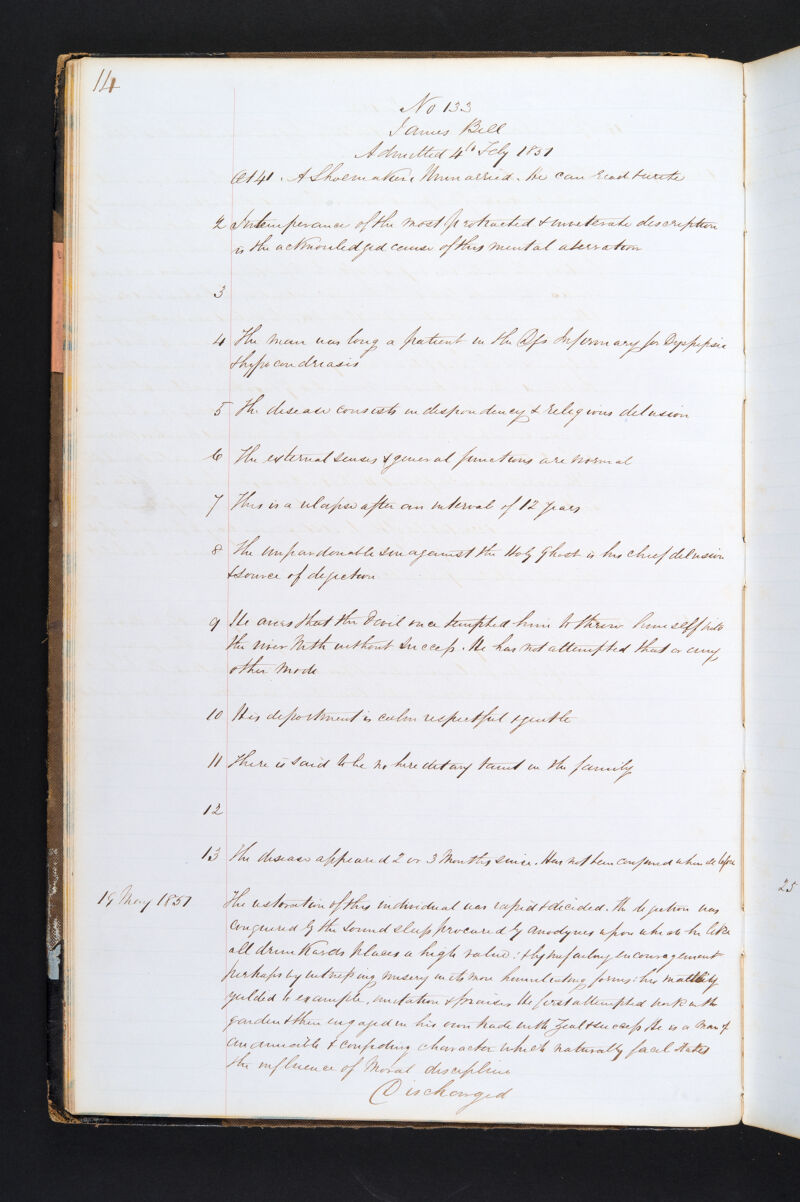 14
No 133
James Bell
Admitted 4th Feby 1851
Aet 41. A Shoemaker. Unmarried. He can read & write
2 Intemperance of the most protracted & inveterate description
is the acknowledged cause of this mental aberration
3
4 The man was long a patient in the Dfs Infirmary for Dyspepsia
& hypocondriasis
5 The disease consists in despondency & religious delusion
6 The external senses & general functions are normal
7 This is a relapse after an interval of 12 years
8 The unpardonable sin against the Holy Ghost is his chief delusion
& source of dejection
9 He avers that the Devil once tempted him to throw himself into
the river Nith without success. He has not attempted that or any
other mode
10 His deportment is calm respectful & gentle
11 There is said to be no hereditary taint in the family
12
13 The disease appeared 2 or 3 Months since. Has not been confined before
19 May 1851 The restoration of this individual was rapid & decided. The dejection was
conquered by the sound sleep procured by anodynes upon which he like
all drunkards places a high value: & by unfailing encouragement
perhaps by witnessing misery in its more humiliating forms: his
yielded to example, imitation & praise. He first attempted work in the
garden & then engaged in his own trade with zeal & success He is a man of
an amiable & confiding character which naturally facilitates
the influence of Moral discipline
Discharged
25